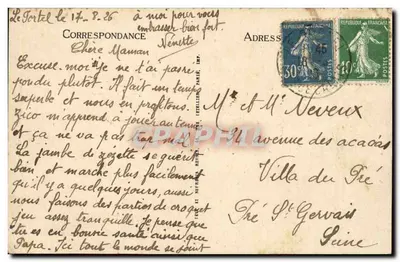 Le Portel le 17-8-26
à moi pour vous
embrasser bien fort.
Nénette
CORRESPONDANCE
Chère Maman
Excuse moi je ne t'ai pas re-
pondu plutot. Il fait un temps
superbe et nous en profitons.
m'apprend à jouer au tennis
et ça ne va pas trop mal.
La jambe de zezette se guerit
bien, et marche plus facilement
qu'il y a quelques jours, aussi
nous faisons des parties de croquet
jeu assez tranquille. Je pense que
tu es en bonne santé ainsi que
Papa. Ici tout le monde se joint
ADRESSE
30c
10c
Mr et Me Neveux
24 avenue des acacias
Villa du Pré
Pré St Gervais
Seine